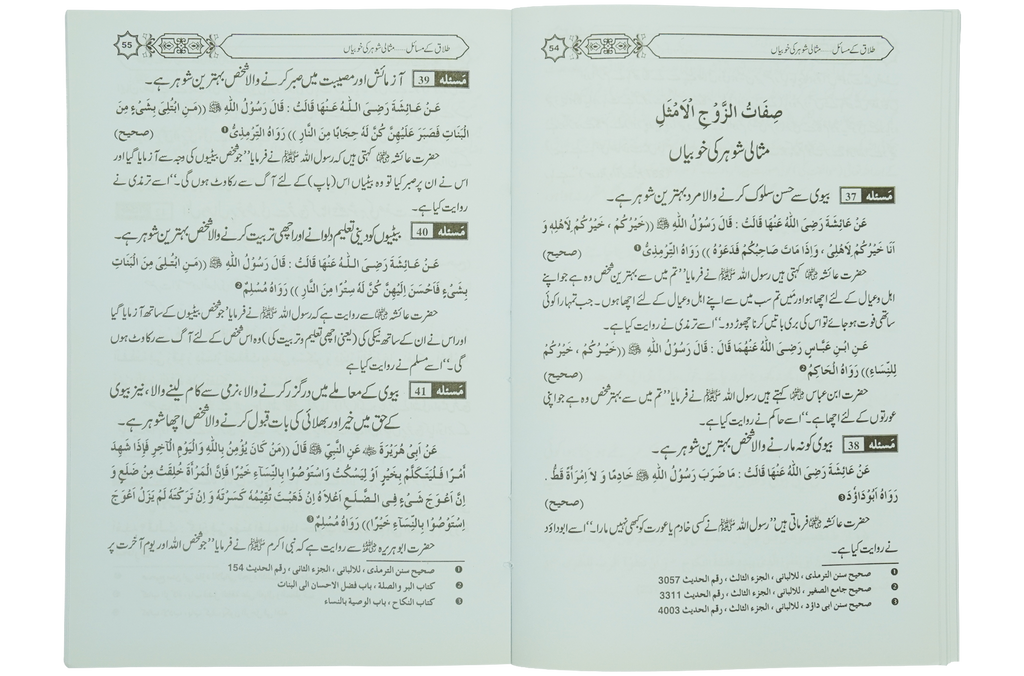 طلاق کے مسائل ..... مثالی شوہر کی خوبیاں
54
صِفَاتُ الزَّوْجِ الْاَمْثَلِ
مثالی شوہر کی خوبیاں
مسئله 37 بیوی سے حسن سلوک کرنے والا مرد بہترین شوہر ہے۔
عَنْ عَائِشَةَ رَضِىَ اللّٰهُ عَنْهَا قَالَتْ : قَالَ رَسُوْلُ اللّٰهِ ﷺ ((خَيْرُكُمْ ، خَيْرُكُمْ لِاَهْلِهٖ وَ
اَنَا خَيْرُكُمْ لِاَهْلِىْ ، وَإِذَا مَاتَ صَاحِبُكُمْ فَدَعُوْهُ )) رَوَاهُ التِّرْمِذِىُّ ❶ (صحيح)
حضرت عائشہ رضی اللہ عنہا کہتی ہیں رسول اللہ ﷺ نے فرمایا ’’تم میں سے بہترین شخص وہ ہے جو اپنے
اہل وعیال کے لئے اچھا ہو اور میں تم سب میں سے اپنے اہل وعیال کے لئے اچھا ہوں۔ جب تمہارا کوئی
ساتھی فوت ہو جائے تو اس کی بری باتیں کرنا چھوڑ دو۔‘‘ اسے ترمذی نے روایت کیا ہے۔
عَنِ ابْنِ عَبَّاسٍ رَضِىَ اللّٰهُ عَنْهُمَا قَالَ : قَالَ رَسُوْلُ اللّٰهِ ﷺ ((خَيْرُكُمْ ، خَيْرُكُمْ
لِلنِّسَاءِ)) رَوَاهُ الْحَاكِمُ ❷ (صحيح)
حضرت ابن عباس رضی اللہ عنہما کہتے ہیں رسول اللہ ﷺ نے فرمایا ’’تم میں سے بہتر شخص وہ ہے جو اپنی
عورتوں کے لئے اچھا ہے۔‘‘ اسے حاکم نے روایت کیا ہے۔
مسئله 38 بیوی کو نہ مارنے والا شخص بہترین شوہر ہے۔
عَنْ عَائِشَةَ رَضِىَ اللّٰهُ عَنْهَا قَالَتْ : مَا ضَرَبَ رَسُوْلُ اللّٰهِ ﷺ خَادِمًا وَ لَا امْرَاَةً قَطُّ .
رَوَاهُ اَبُوْدَاوُدَ ❸ (صحيح)
حضرت عائشہ رضی اللہ عنہا فرماتی ہیں ’’رسول اللہ ﷺ نے کسی خادم یا عورت کو کبھی نہیں مارا۔‘‘ اسے ابوداود
نے روایت کیا ہے۔
❶ صحيح سنن الترمذى ، للالبانى ، الجزء الثالث ، رقم الحديث 3057
❷ صحيح جامع الصغير ، للالبانى ، الجزء الثالث ، رقم الحديث 3311
❸ صحيح سنن ابى داؤد ، للالبانى ، الجزء الثالث ، رقم الحديث 4003
طلاق کے مسائل ..... مثالی شوہر کی خوبیاں
55
مسئله 39 آزمائش اور مصیبت میں صبر کرنے والا شخص بہترین شوہر ہے۔
عَنْ عَائِشَةَ رَضِىَ اللّٰهُ عَنْهَا قَالَتْ : قَالَ رَسُوْلُ اللّٰهِ ﷺ ((مَنِ ابْتُلِىَ بِشَىْءٍ مِنَ
الْبَنَاتِ فَصَبَرَ عَلَيْهِنَّ كُنَّ لَهٗ حِجَابًا مِنَ النَّارِ )) رَوَاهُ التِّرْمِذِىُّ ❶ (صحيح)
حضرت عائشہ رضی اللہ عنہا کہتی ہیں کہ رسول اللہ ﷺ نے فرمایا ’’جو شخص بیٹیوں کی وجہ سے آزمایا گیا اور
اس نے ان پر صبر کیا تو وہ بیٹیاں اس (باپ) کے لئے آگ سے رکاوٹ ہوں گی۔‘‘ اسے ترمذی نے
روایت کیا ہے۔
مسئله 40 بیٹیوں کو دینی تعلیم دلوانے اور اچھی تربیت کرنے والا شخص بہترین شوہر ہے۔
عَنْ عَائِشَةَ رَضِىَ اللّٰهُ عَنْهَا قَالَتْ : قَالَ رَسُوْلُ اللّٰهِ ﷺ ((مَنِ ابْتُلِىَ مِنَ الْبَنَاتِ
بِشَىْءٍ فَاَحْسَنَ اِلَيْهِنَّ كُنَّ لَهٗ سِتْرًا مِنَ النَّارِ )) رَوَاهُ مُسْلِمٌ ❷
حضرت عائشہ رضی اللہ عنہا سے روایت ہے کہ رسول اللہ ﷺ نے فرمایا ’’جو شخص بیٹیوں کے ساتھ آزمایا گیا
اور اس نے ان کے ساتھ نیکی کی (یعنی اچھی تعلیم وتربیت کی) وہ اس شخص کے لئے آگ سے رکاوٹ ہوں
گی۔‘‘ اسے مسلم نے روایت کیا ہے
مسئله 41 بیوی کے معاملے میں درگزر کرنے والا، نرمی سے کام لینے والا، نیز بیوی
کے حق میں خیر اور بھلائی کی بات قبول کرنے والا شخص اچھا شوہر ہے۔
عَنْ اَبِىْ هُرَيْرَةَ رضی اللہ عنہ عَنِ النَّبِىِّ ﷺ قَالَ ((مَنْ كَانَ يُؤْمِنُ بِاللّٰهِ وَالْيَوْمِ الْآخِرِ فَإِذَا شَهِدَ
اَمْرًا فَلْيَتَكَلَّمْ بِخَيْرٍ اَوْ لِيَسْكُتْ وَاسْتَوْصُوْا بِالنِّسَاءِ خَيْرًا فَاِنَّ الْمَرْاَةَ خُلِقَتْ مِنْ ضِلَعٍ وَ
اِنَّ اَعْوَجَ شَىْءٍ فِى الضِّلَعِ اَعْلَاهُ اِنْ ذَهَبْتَ تُقِيْمُهٗ كَسَرْتَهٗ وَ اِنْ تَرَكْتَهٗ لَمْ يَزَلْ اَعْوَجَ
اِسْتَوْصُوْا بِالنِّسَاءِ خَيْرًا)) رَوَاهُ مُسْلِمٌ ❸
حضرت ابو ہریرہ رضی اللہ عنہ سے روایت ہے کہ نبی اکرم ﷺ نے فرمایا ’’جو شخص اللہ اور یوم آخرت پر
❶ صحيح سنن الترمذى ، للالبانى ، الجزء الثانى ، رقم الحديث 154
❷ كتاب البر والصلة ، باب فضل الاحسان الى البنات
❸ كتاب النكاح ، باب الوصية بالنساء